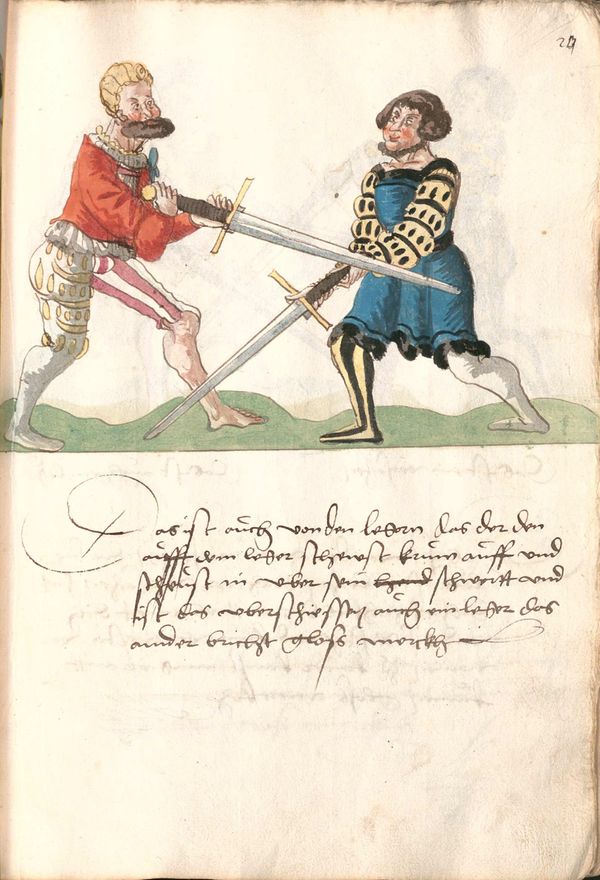 27
Das ist auch von den legern das der den
aufff dem leger schewst krum auff und
schewst in uber sein hend schwertt und
ist das uberschiessen auch ein leger das
ander bricht gloss merckh